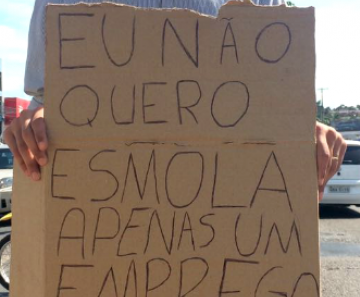 EU NÃO
QUERO
ESMOLA
APENAS UM
EMPREGO